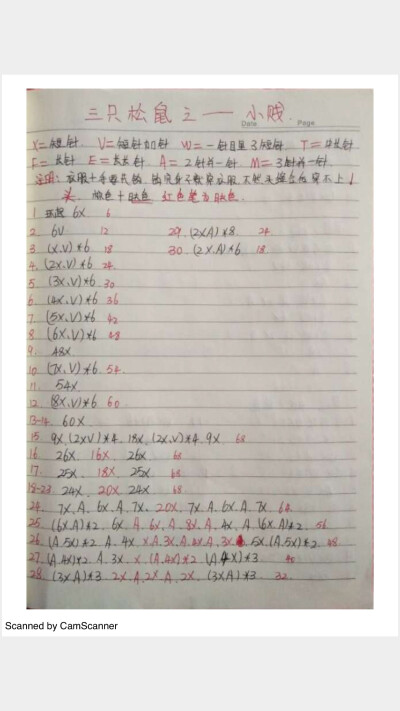 三只松鼠之——小贱.
Date Page
X=短针 V=短针加针 W=一针目里3短针 T=中长针
F=长针 E=长长针 A=2针并一针 M=3针并一针
头 棕色+肤色 红色笔为肤色.
1 环起 6X 6
2 6V 12 29. (2XA)*8 24
3 (X.V)*6 18 30. (2XA)*6 18
4. (2X.V)*6 24
5 (3X.V)*6 30
6 (4X.V)*6 36
7 (5X.V)*6 42
8 (6X.V)*6 48
9. 48X
10 (7X.V)*6 54
11. 54X
12 (8X.V)*6 60
13-14. 60X
15 9X.(2XV)*4. 18X.(2X.V)*4. 9X. 68
16. 26X. 16X. 26X 68
17. 25X. 18X 25X 68
18-23. 24X. 20X 24X 68
24. 7X.A. 6X.A.7X. 20X. 7X.A.6X.A.7X 64
25. (6X.A)*2. 6X. A.6X.A.8X.A. 4X.A (6X.A)*2 56
26. (A.5X)*2 A.4X XA.3X.A.4XA.3X 5X.(A.5X)*2 48
27. (A.4X)*2 A.3X. X.(A.4X)*2 (A4X)*3 40
28. (3XA)*3 2X A.2X A.2X. (3XA)*3 32
Scanned by CamScanner